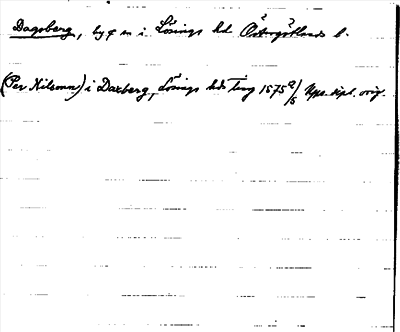 Dagsberg, by o sn i Lösings hd Östergötlands l.
(Per Nilsonn) i Daxberg, Lösings hds ting 1575 9/5 Ups. dipl. orig.